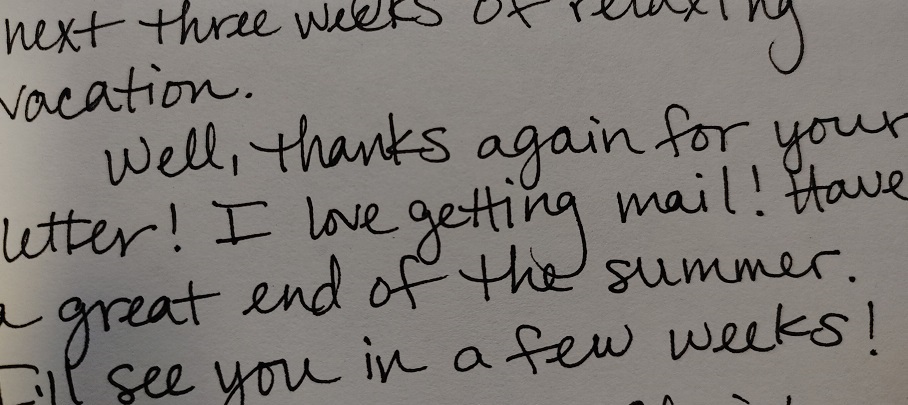 next three weeks of relaxing
vacation.
Well, thanks again for your
letter! I love getting mail! Have
a great end of the summer.
I'll see you in a few weeks!